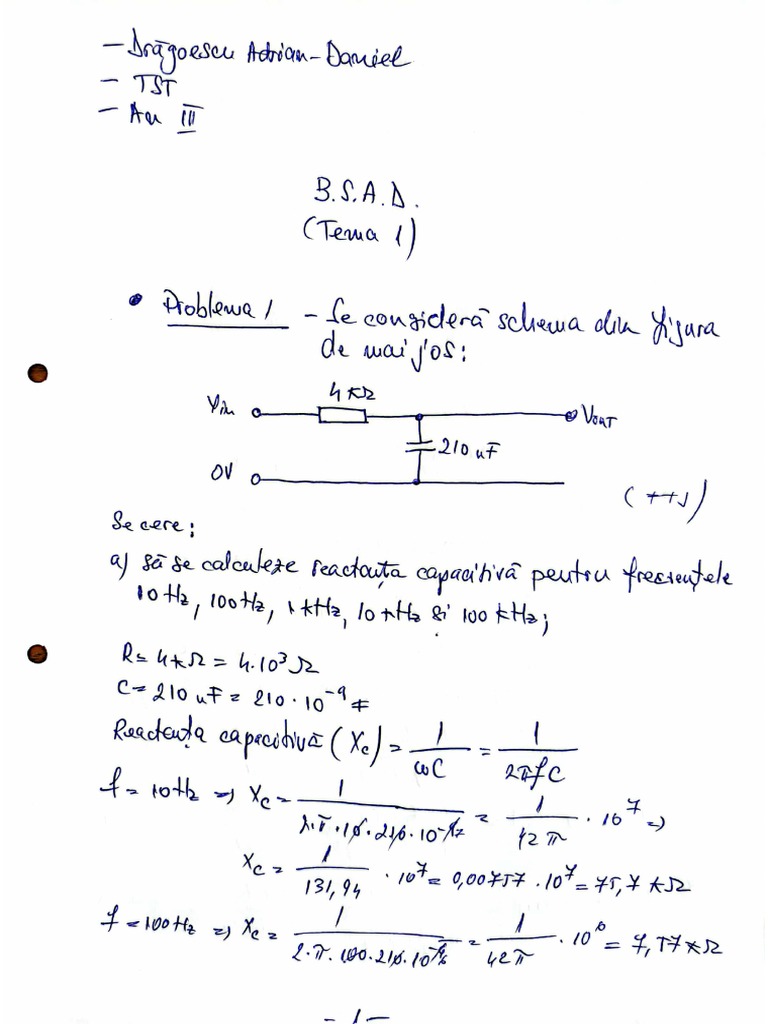 - Drăgoescu Adrian-Daniel
- TST
- An III
B.S.A.D.
(Tema 1)
• Problema 1 - Se consideră schema din figura
de mai jos:
4kΩ
Vin
VOUT
210 nF
0V
Se cere:
a) să se calculeze reactanța capacitivă pentru frecvențele
10Hz, 100Hz, 1kHz, 10kHz și 100 kHz;
R = 4kΩ = 4.10³ Ω
C = 210 nF = 210·10⁻⁹ F
Reactanța capacitivă (Xc) = 1/ωC = 1/2πfC
f = 10Hz => Xc = 1/2·π·10·210·10⁻⁹ = 1/42π · 10⁷ =>
Xc = 1/131,94 · 10⁷ = 0,00757·10⁷ = 75,7 kΩ
f = 100Hz => Xc = 1/2·π·100·210·10⁻⁹ = 1/42π · 10⁶ = 7,57 kΩ
-1-